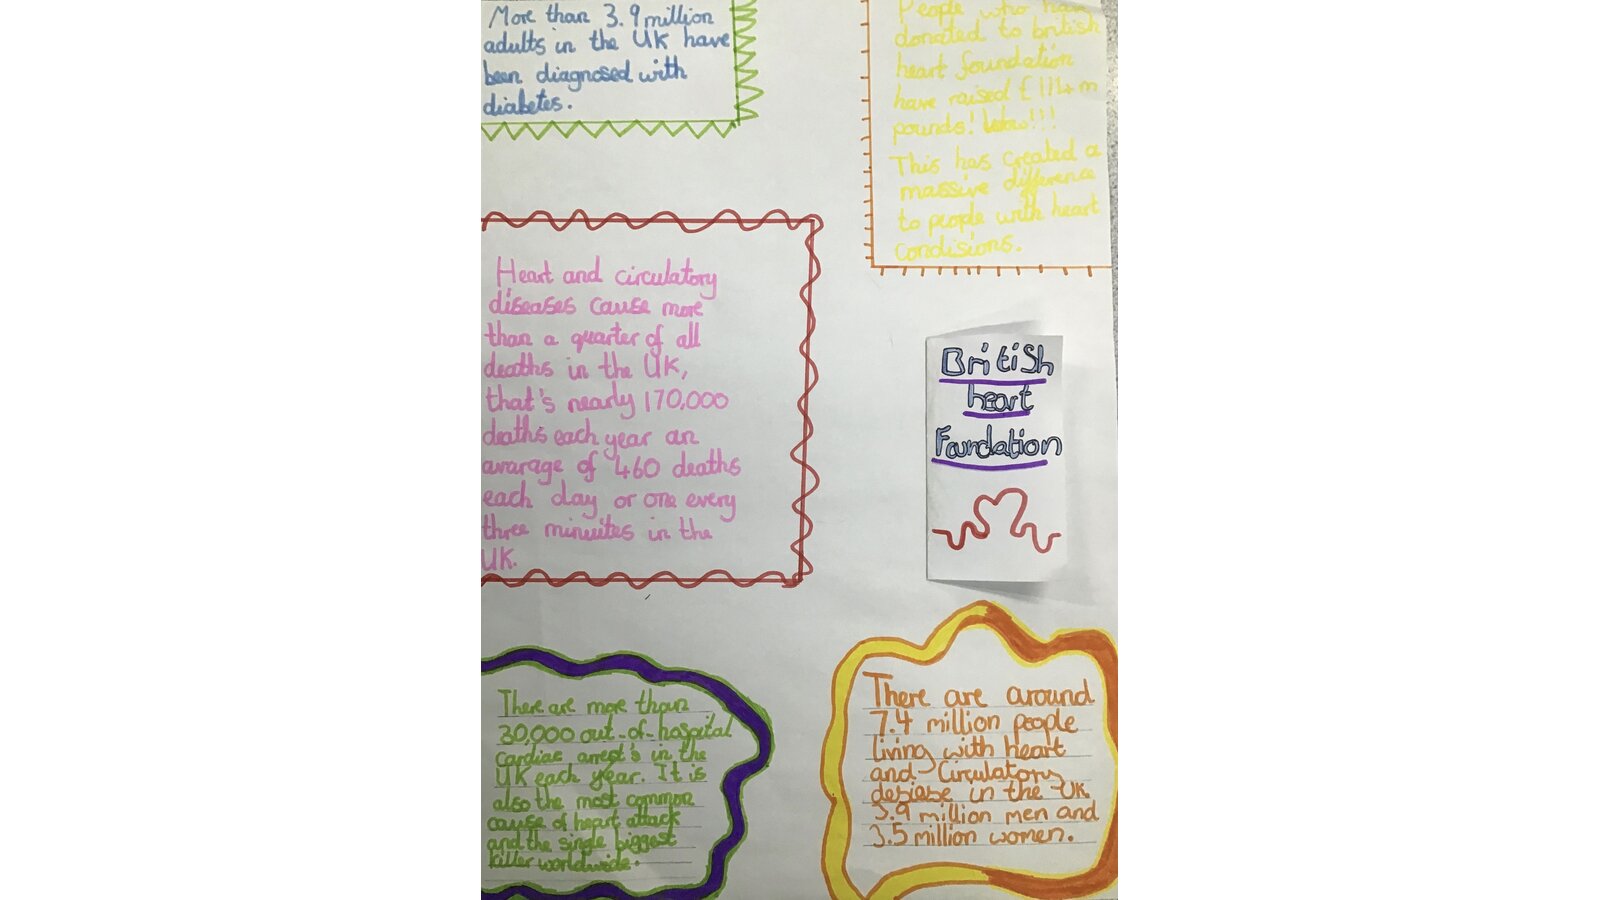 More than 3.9 million
adults in the UK have
been diagnosed with
diabetes.
People who have
donated to british
heart foundation
have raised £ 114 m
pounds! Wow!!!
This has created a
massive difference
to people with heart
condisions.
Heart and circulatory
diseases cause more
than a quarter of all
deaths in the UK,
that's nearly 170,000
deaths each year an
avarage of 460 deaths
each day or one every
three minuites in the
UK.
British
heart
Foundation
There are more than
30,000 out-of-hospital
cardiac arrest's in the
UK each year. It is
also the most common
cause of heart attack
and the single biggest
killer worldwide.
There are around
7.4 million people
living with heart
and Circulatory
desiase in the UK
3.9 million men and
3.5 million women.